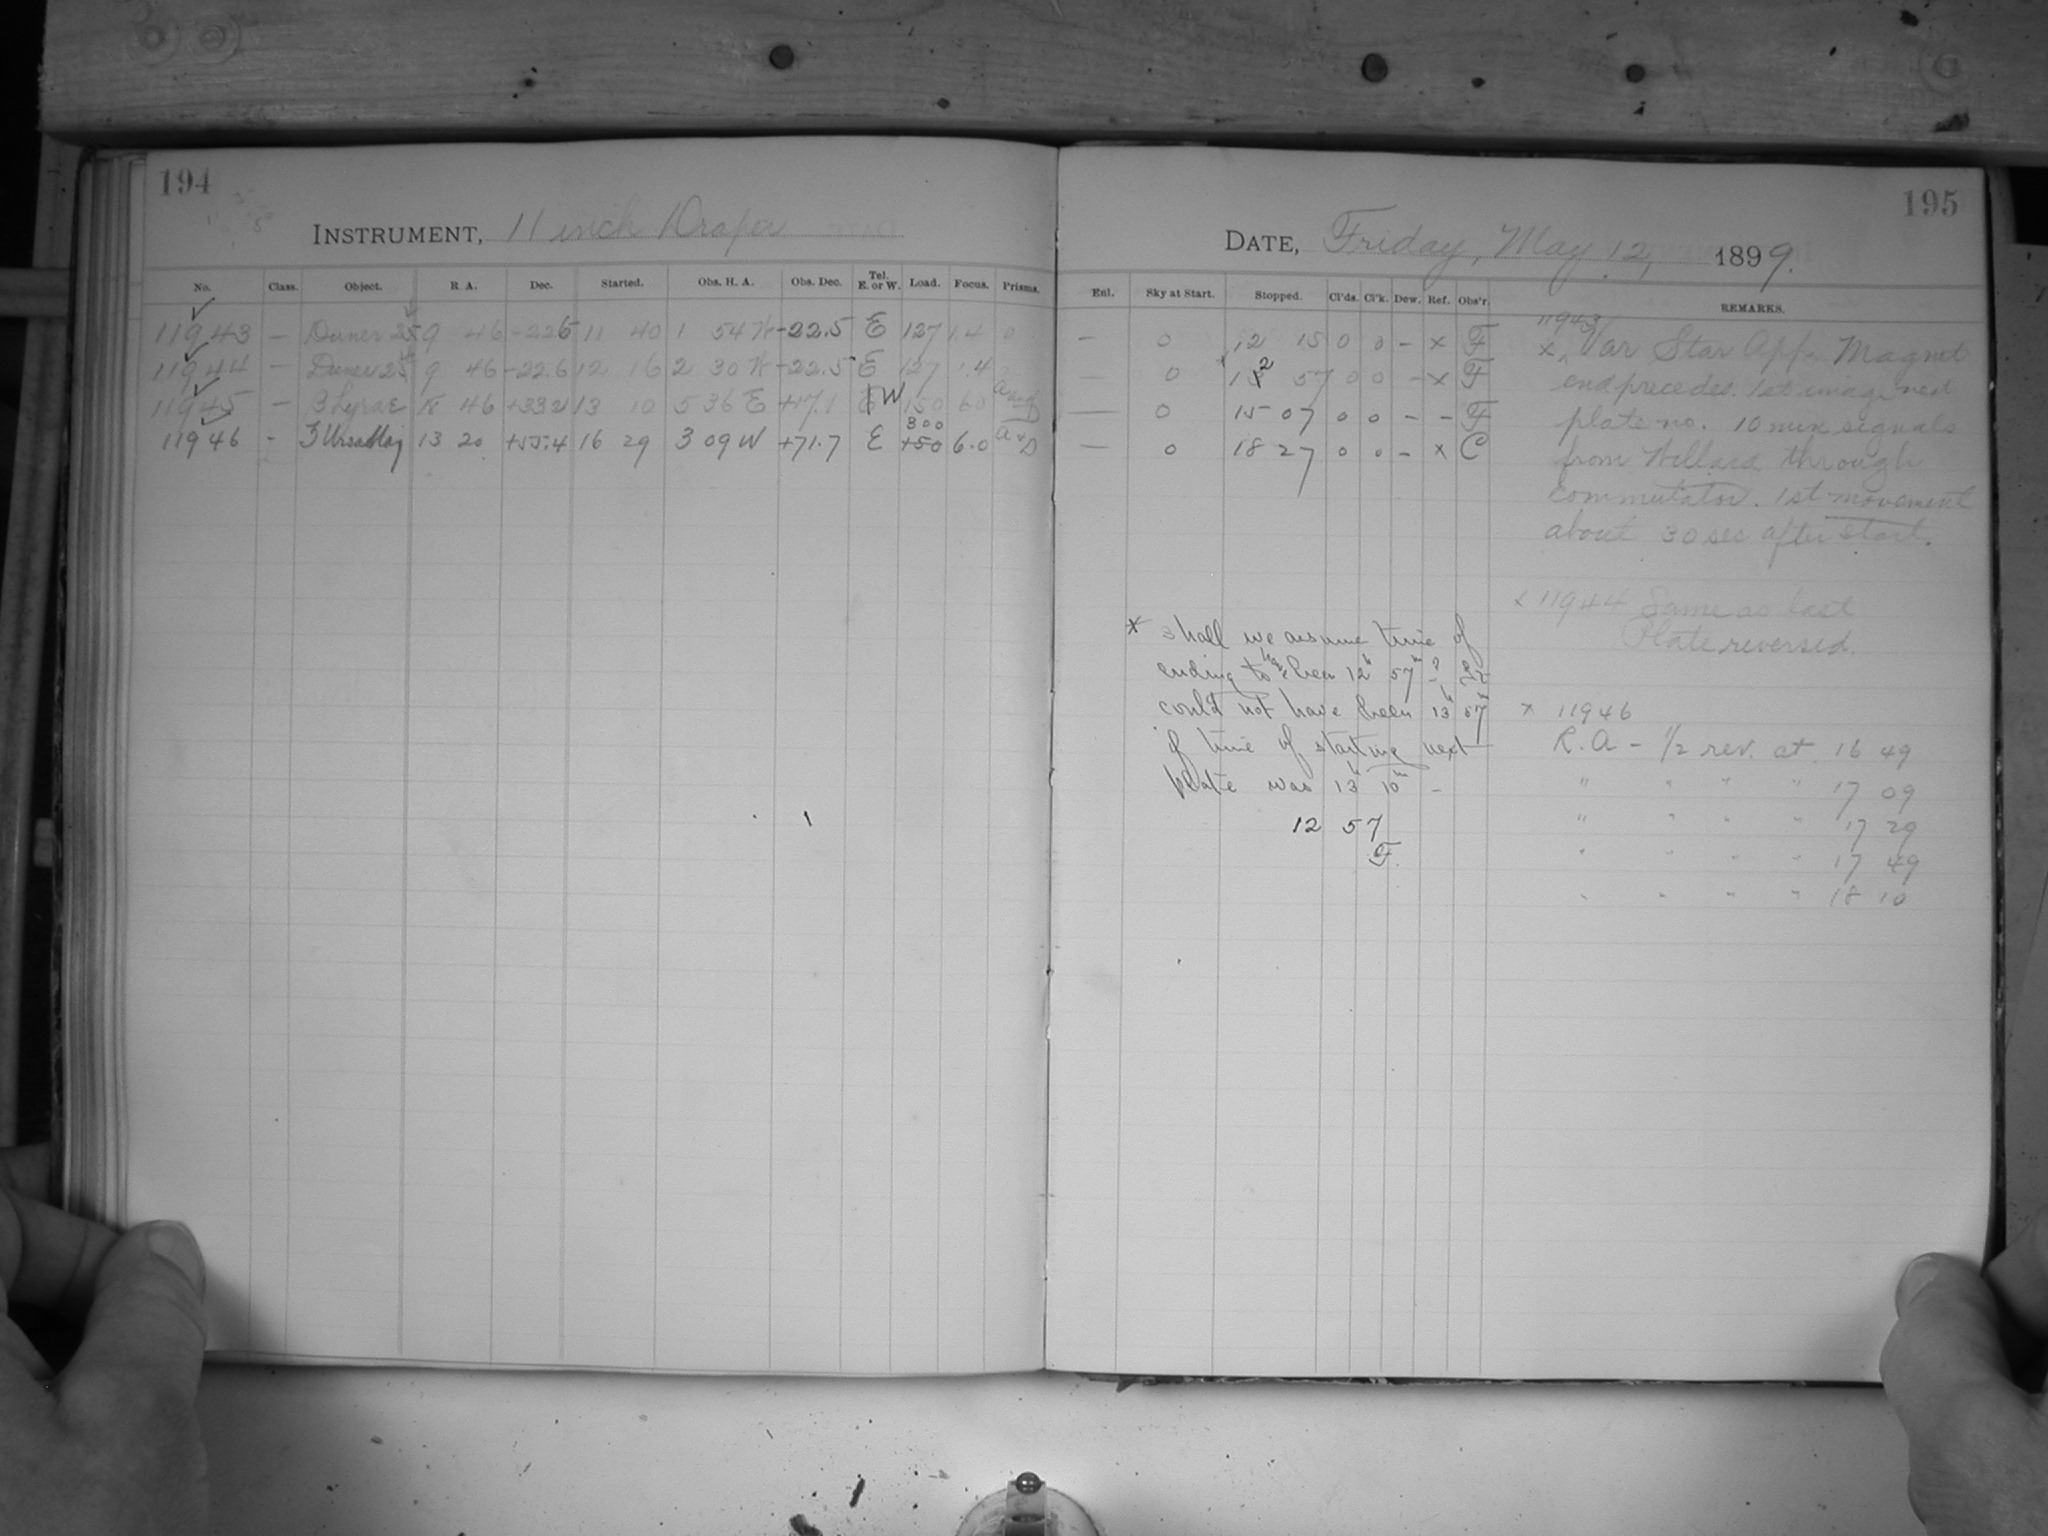 194
INSTRUMENT, 11 inch Draper
No. Class. Object. R. A. Dec. Started. Obs. H. A. Obs. Dec. Tel. E. or W. Load. Focus. Prisms.
11943 — Duner 25 9 46 -22.6 11 40 1 54 W -22.5 E 127 1.4 0
11944 — Duner 25 9 46 -22.6 12 16 2 30 W -22.5 E 127 1.4
11945 — β Lyrae 18 46 +33.2 13 10 5 36 E +17.1 W 150 6.0
11946 - ζ Ursa Maj 13 20 +55.4 16 29 3 09 W +71.7 E 300 +50 6.0 A & D
195
DATE, Friday, May 12, 1899.
Enl. Sky at Start. Stopped. Cl'ds. Cl'k. Dew. Ref. Obs'r. REMARKS.
— 0 12 15 0 0 – x F
— 0 12 57 0 0 – x F
— 0 15 07 0 0 – – F
— 0 18 27 0 0 – x C
11943
x Var Star App. Magnet
end precedes. 1st image next
plate no. 10 min signals
from Willard through
commutator. 1st movement
about 30 sec after start.
x 11944 Same as last
Plate reversed.
* shall we assume time of
ending to have been 12h 57m?
could not have been 13h 57
if time of starting next
plate was 13h 10m –
12 57
F.
x 11946
R.A – 1/2 rev. at 16 49
" " " " 17 09
" " " " 17 29
" " " " 17 49
" " " " 18 10